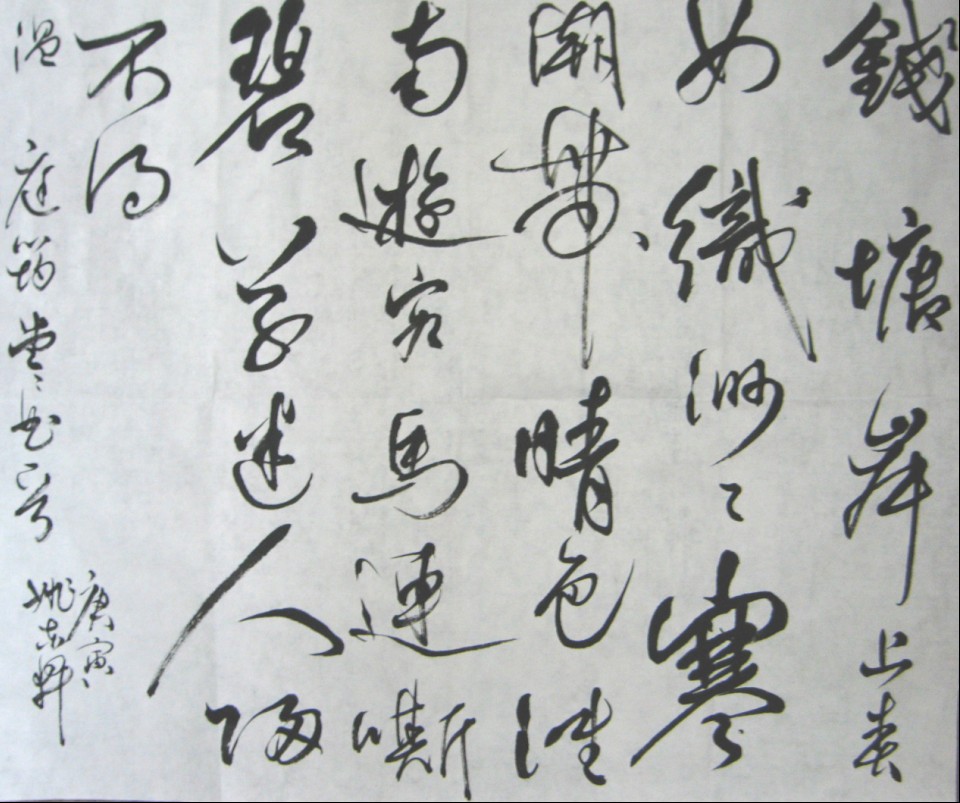 錢塘岸上春
如織渺々寒
潮帶晴色淮
南遊客馬連嘶
碧草迷人歸
不得
溫庭筠堂々
庚寅
姚